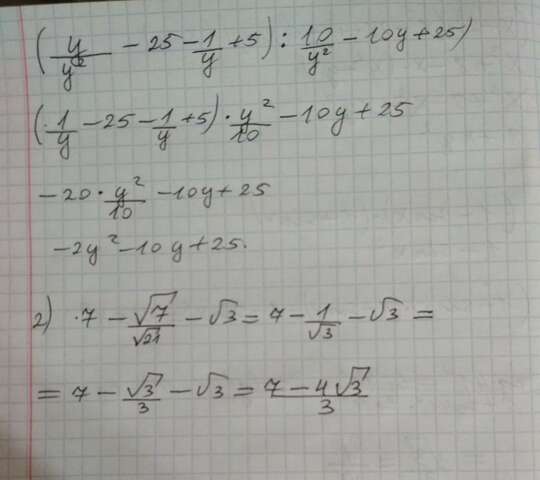 (y/y² - 25 - 1/y + 5) : 10/y² - 10y + 25)
(·1/y - 25 - 1/y + 5) · y²/10 - 10y + 25
-20 · y²/10 - 10y + 25
-2y² - 10y + 25.
2) ·7 - √7/√21 - √3 = 7 - 1/√3 - √3 =
= 7 - √3/3 - √3 = 7 - 4√3/3